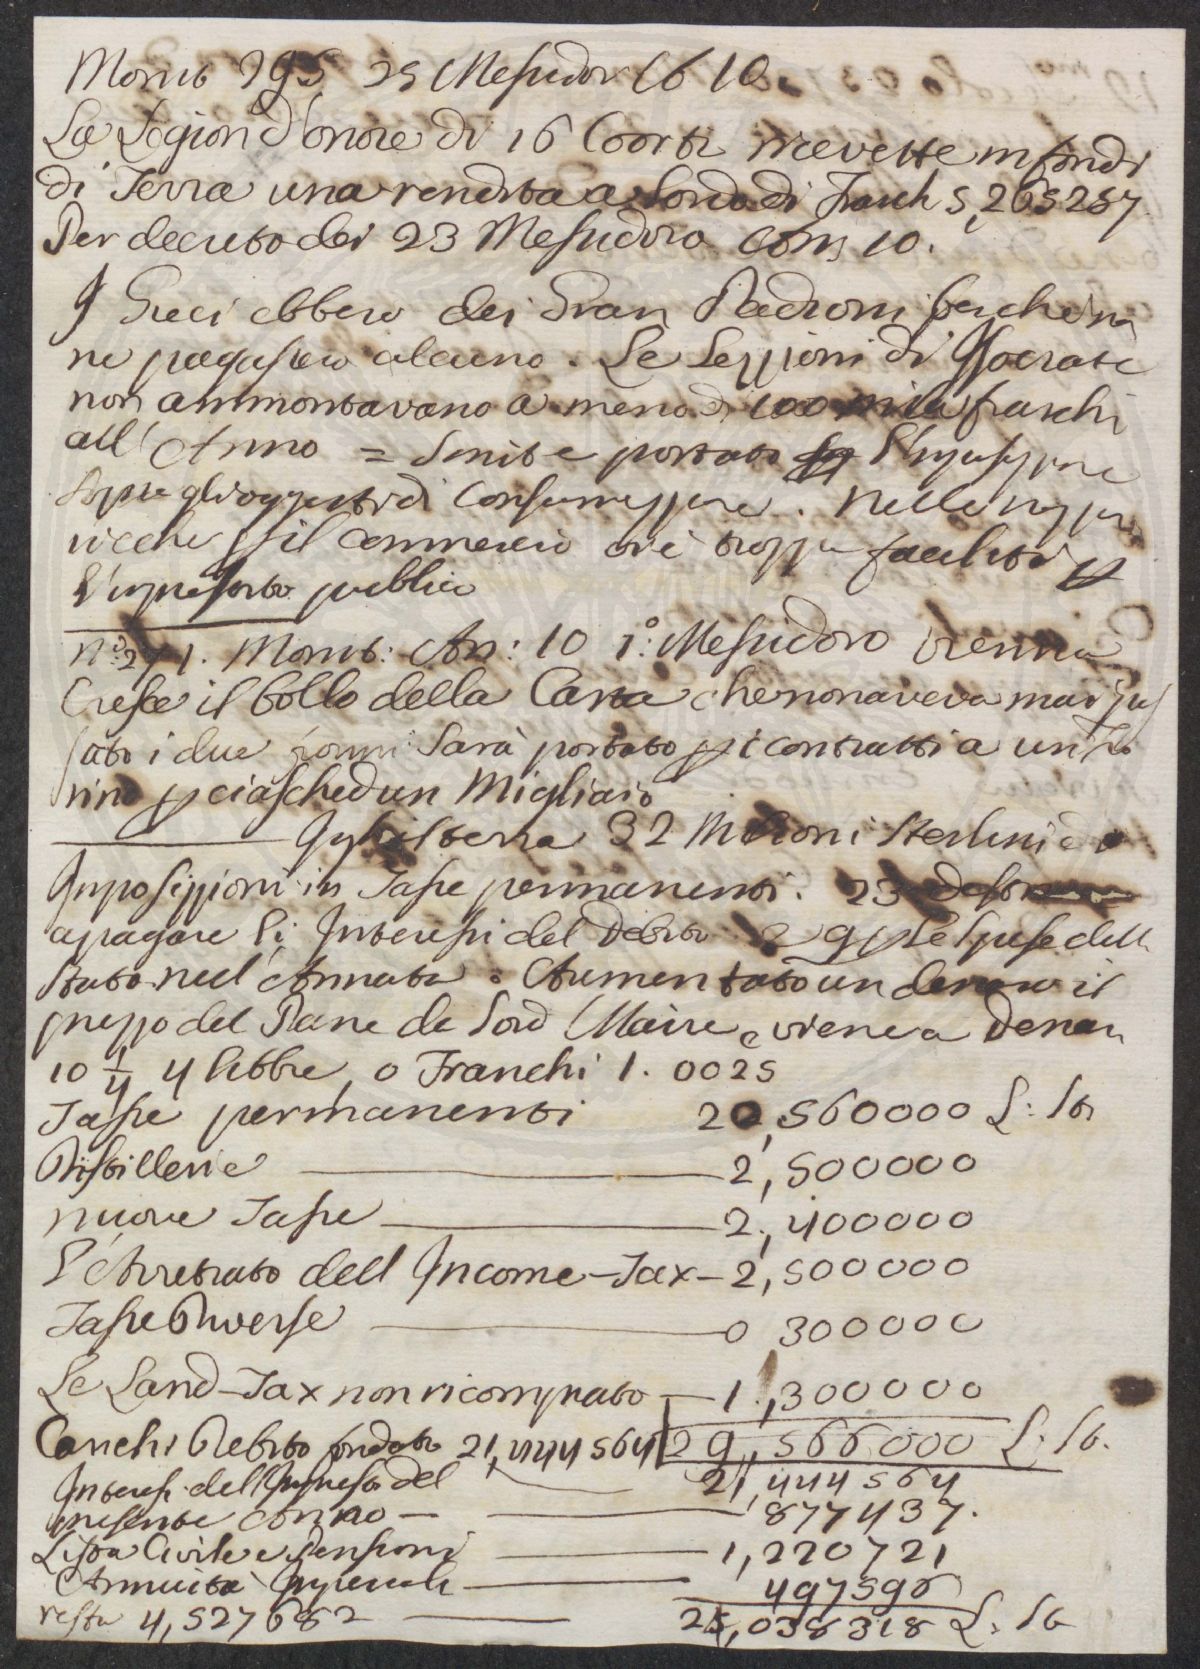 Monit 295 25 Messidor 16 10.
La Legion d'Onore di 16 Coorti ricevette in fondi
di Terra una rendita a Sordo di Franchi 5,265257
Per decreto dei 23 Messidoro Cons 10.
I Greci ebbero dei Gran Padroni perche
ne pagassero alcuno. Le Lezzioni di Isocrate
non ammontavano a meno di 100 mila franchi
all'Anno = Smit e portato
sopra gli oggetti di Consumazzione. Nelle
ricche il commercio ov'è troppo facilità p
l'impresto publico
n.º 271. Monit: An: 10 1.º Messidoro Vienna
Cresce il bollo della Carta che non aveva mai pas
sato i due Sarà portato p i contratti a un fio
rino p ciaschedun Migliaio
Inghilterra 32 Milioni Sterlini
Imposizzioni in Tasse permanenti. 23
a pagare li Interessi del Debito 9 p le spese dello
Stato nell'Annata. Aumentato un denaro il
prezzo del Pane da Lord Maire, viene a Denari
10 1/4 4 libbre, o Franchi 1.0025
Tasse permanenti 20,560000 L: St
Distillerie 2,500000
nuove Tasse 2,400000
L'Arretrato dell Income-Tax - 2,500000
Tasse Diverse 0 300000
Le Land-Tax non ricomprato 1,300000
Carichi Debito fondato 21,444564 29,566000 L: St.
Interessi dell'Impresto del 21,444564
presente Anno - 877437.
Lista Civile e Pensioni 1,220721
Annuità Imperiali 497596
resta 4,527682 25,038318 L. St